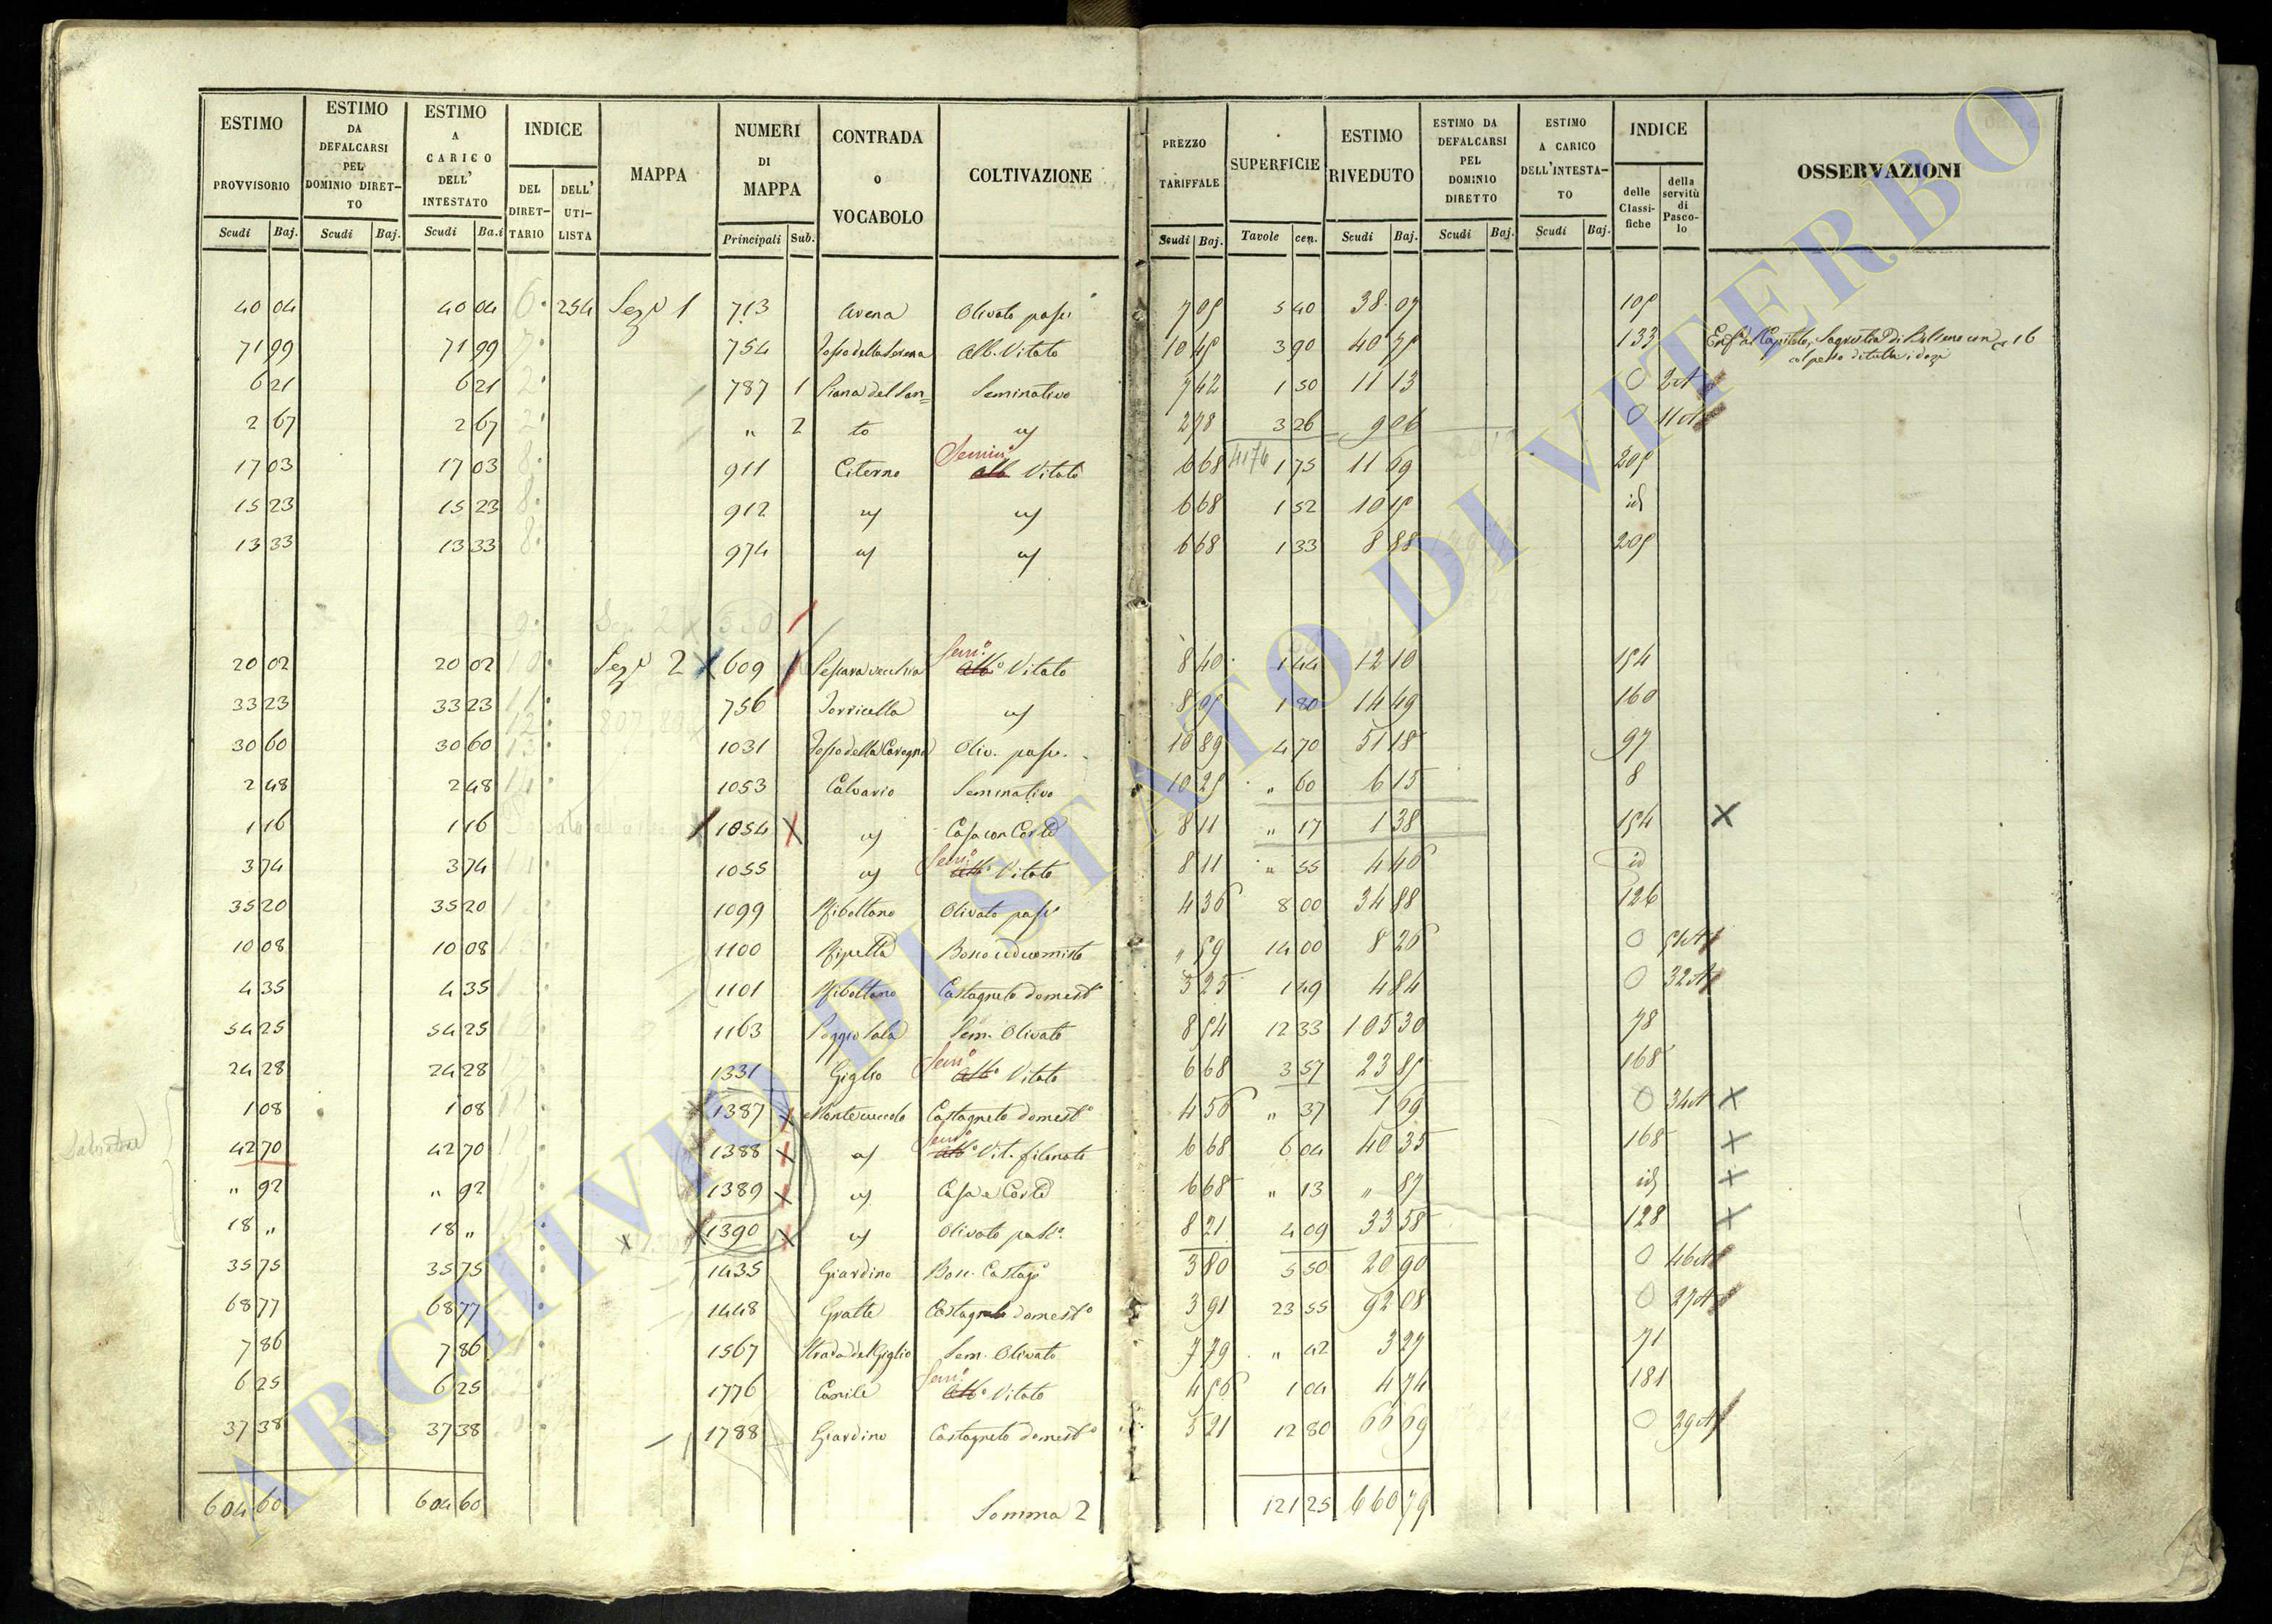 ESTIMO PROVVISORIO | ESTIMO DA DEFALCARSI PEL DOMINIO DIRETTO | ESTIMO A CARICO DELL' INTESTATO | INDICE | MAPPA | NUMERI DI MAPPA | CONTRADA o VOCABOLO | COLTIVAZIONE | PREZZO TARIFFALE | SUPERFICIE | ESTIMO RIVEDUTO | ESTIMO DA DEFALCARSI PEL DOMINIO DIRETTO | ESTIMO A CARICO DELL'INTESTATO | INDICE | OSSERVAZIONI
DEL DIRETTARIO | DELL' UTILISTA | delle Classifiche | della servitù di Pascolo
Scudi | Baj. | Scudi | Baj. | Scudi | Ba.i | Principali | Sub. | Scudi | Baj. | Tavole | cen. | Scudi | Baj. | Scudi | Baj. | Scudi | Baj.
40 04 | 40 04 | 6 | 254 | Sez.e 1 | 713 | Avena | Olivato pasc. | 7 05 | 5 40 | 38 07 | 105
71 99 | 71 99 | 7 | 754 | Alb. Vitato | 10 45 | 3 90 | 40 75 | 133 | 16
6 21 | 6 21 | 2 | 787 | 1 | Piana del San= | Seminativo | 7 42 | 1 50 | 11 13 | 0 | 2A
2 67 | 2 67 | 2 | " | 2 | to | id | 2 78 | 3 26 | 9 06 | 0 | 11A
17 03 | 17 03 | 8 | 911 | Citerno | Semin.o alb Vitato | 6 68 | 4176 | 1 75 | 11 69 | 205
15 23 | 15 23 | 8 | 912 | id | id | 6 68 | 1 52 | 10 15 | id
13 33 | 13 33 | 8 | 974 | id | id | 6 68 | 1 33 | 8 88 | 205
9 | Sez. 2 | 550
20 02 | 20 02 | 10 | Sez.e 2 | 609 | Pescara vecchia | Sem.o Alb.o Vitato | 8 40 | 1 44 | 12 10 | 154
33 23 | 33 23 | 11 | 756 | Torricella | id | 8 05 | 1 80 | 14 49 | 160
12
30 60 | 30 60 | 13 | 1031 | Oliv. pasc. | 10 89 | 4 70 | 51 18 | 97
2 48 | 2 48 | 14 | 1053 | Calvario | Seminativo | 10 25 | " 60 | 6 15 | 8
1 16 | 1 16 | 1054 | id | Casa con Corte | 8 11 | " 17 | 1 38 | 154 | X
3 74 | 3 74 | 1055 | id | Sem.o Alb.o Vitato | 8 11 | " 55 | 4 46 | id
35 20 | 35 20 | 1099 | Riboltano | Olivato pasc.o | 4 36 | 8 00 | 34 88 | 126
10 08 | 10 08 | 1100 | Ripetta | Bosco ceduo misto | " 59 | 14 00 | 8 26 | 0 | 51A
4 35 | 4 35 | 1101 | Riboltano | Castagneto domest.o | 3 25 | 1 49 | 4 84 | 0 | 32A
54 25 | 54 25 | 16 | 1163 | Poggio Sala | Sem. Olivato | 8 54 | 12 33 | 105 30 | 78
24 28 | 24 28 | 17 | 1331 | Giglio | Sem.o Alb.o Vitato | 6 68 | 3 57 | 23 85 | 168
1 08 | 1 08 | 1387 | Montecuccolo | Castagneto domest.o | 4 56 | " 37 | 1 69 | 0 | 34A | X
Salvatori | 42 70 | 42 70 | 1388 | id | Sem.o Alb.o Vit. filonato | 6 68 | 6 04 | 40 35 | 168 | X
" 92 | " 92 | 1389 | id | Casa e Corte | 6 68 | " 13 | " 87 | id | X
18 " | 18 " | 1390 | id | Olivato pasc.o | 8 21 | 4 09 | 33 58 | 128 | X
35 75 | 35 75 | 1435 | Giardino | Bosc. Castag.o | 3 80 | 5 50 | 20 90 | 0 | 46A
68 77 | 68 77 | 1448 | Gratte | Castagneto domest.o | 3 91 | 23 55 | 92 08 | 0 | 27A
7 86 | 7 86 | 1567 | Strada del Giglio | Sem. Olivato | 7 79 | " 42 | 3 27 | 71
6 25 | 6 25 | 1776 | Canile | Sem.o Alb.o Vitato | 4 56 | 1 04 | 4 74 | 181
37 38 | 37 38 | 1788 | Giardino | Castagneto domest.o | 5 21 | 12 80 | 66 69 | 0 | 29A
604 60 | 604 60 | Somma 2 | 121 25 | 660 79
ARCHIVIO DI STATO DI VITERBO